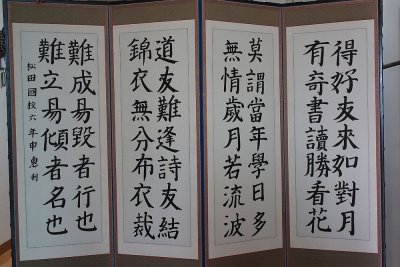 得好友來如對月
有奇書讀勝看花
莫謂當年學日多
無情歲月若流波
道友難逢詩友結
錦衣無分布衣裁
難成易毀者行也
難立易傾者名也
松田國校六年申惠利